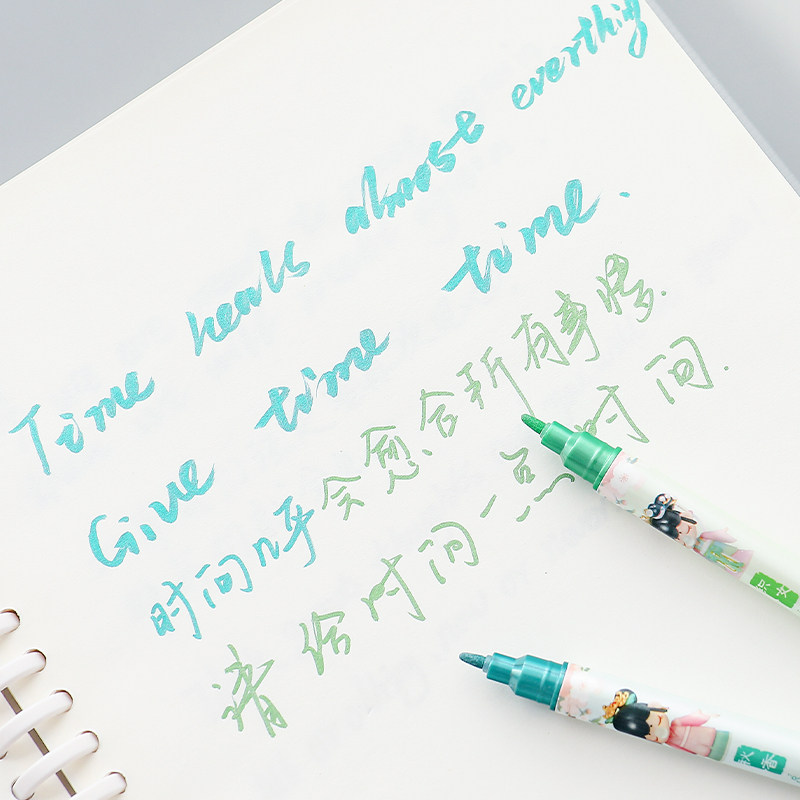 Time heals almost everthing
Give time time.
时间几乎会愈合所有事情.
请给时间一点时间.
织女
秋香